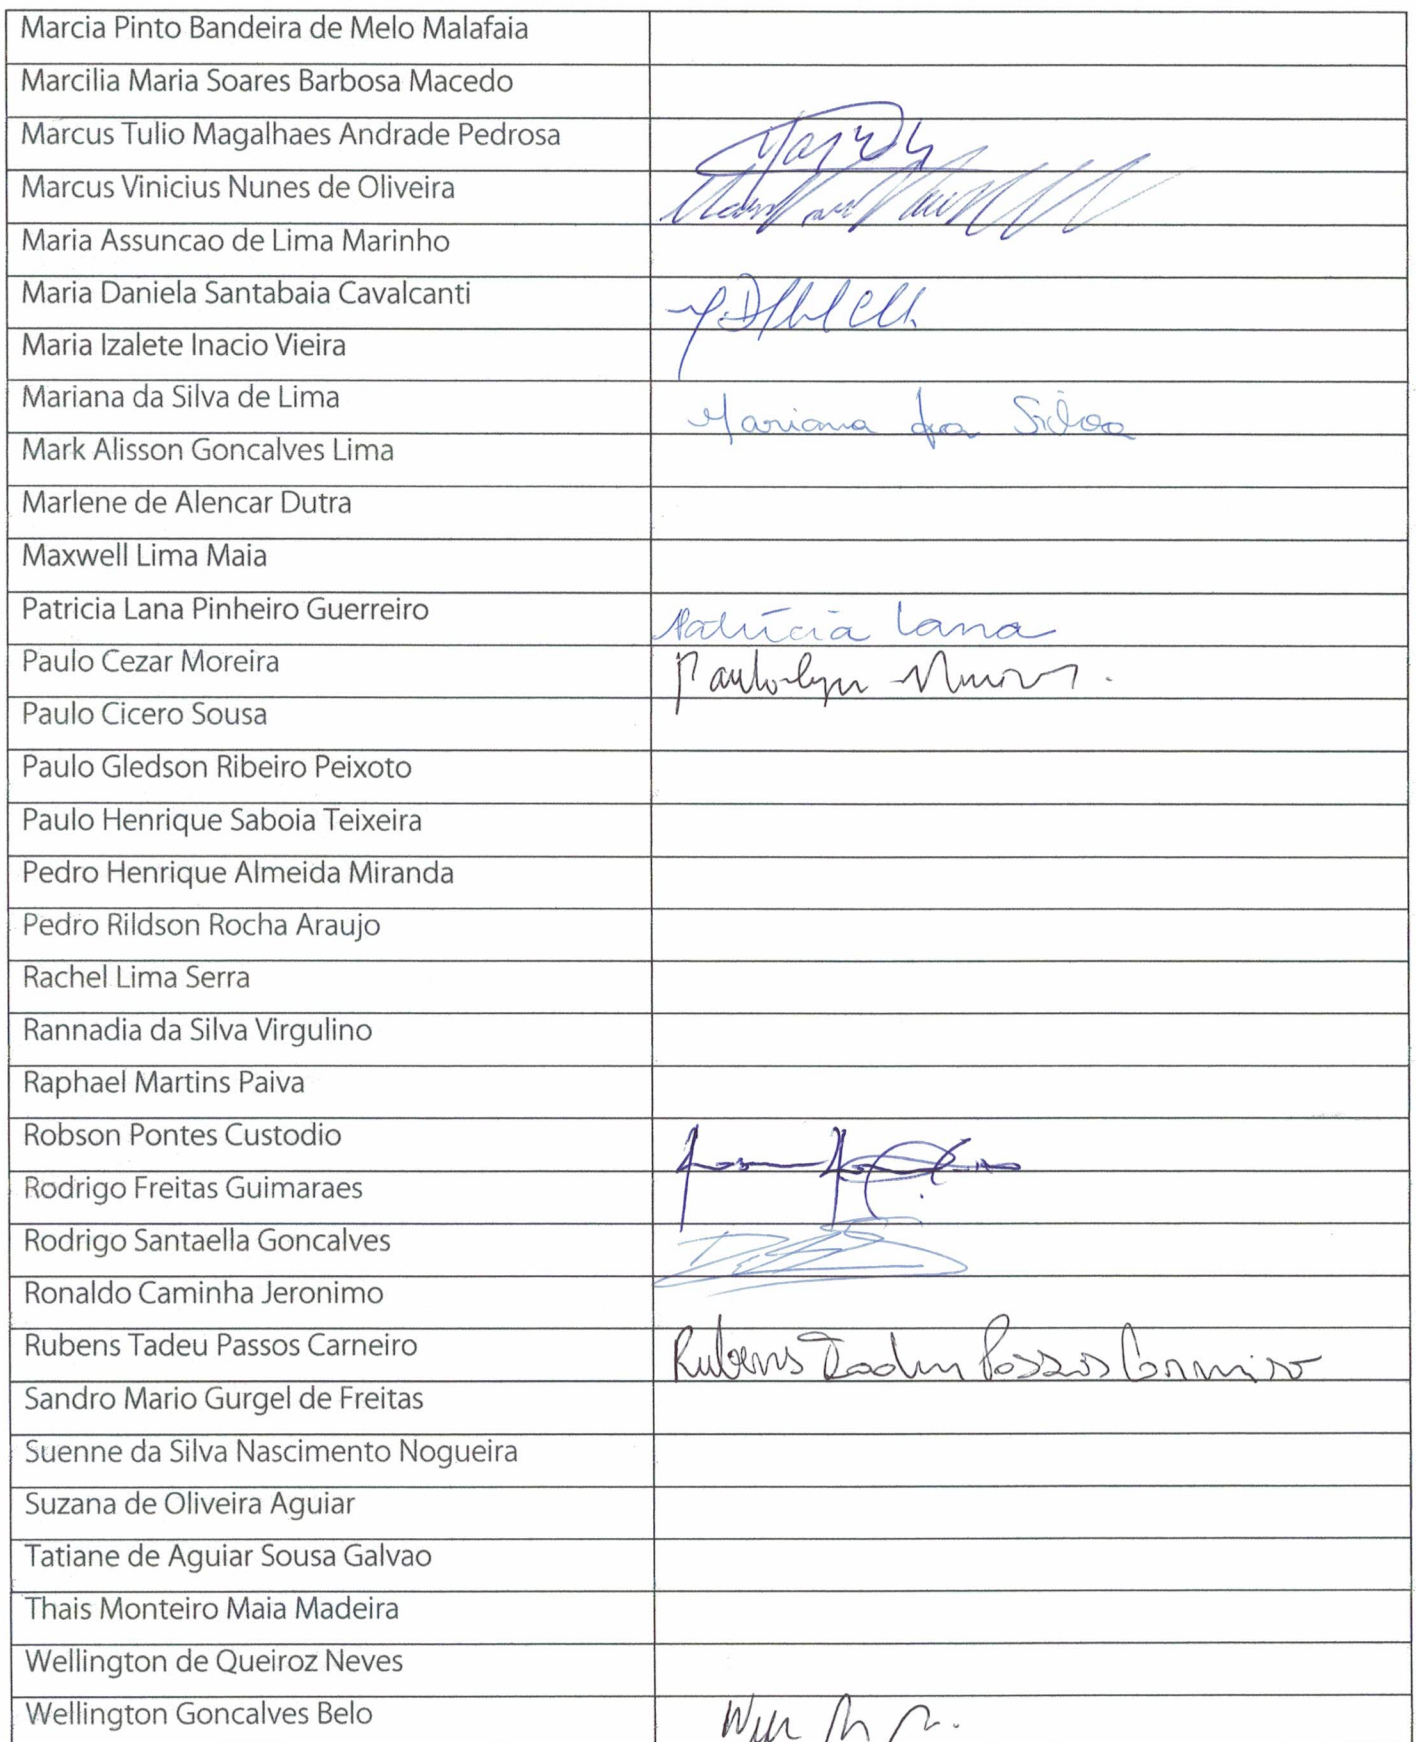 Marcia Pinto Bandeira de Melo Malafaia
Marcilia Maria Soares Barbosa Macedo
Marcus Tulio Magalhaes Andrade Pedrosa
Marcus Vinicius Nunes de Oliveira
Maria Assuncao de Lima Marinho
Maria Daniela Santabaia Cavalcanti
Maria Izalete Inacio Vieira
Mariana da Silva de Lima Mariana da Silva
Mark Alisson Goncalves Lima
Marlene de Alencar Dutra
Maxwell Lima Maia
Patricia Lana Pinheiro Guerreiro Patrícia Lana
Paulo Cezar Moreira
Paulo Cicero Sousa
Paulo Gledson Ribeiro Peixoto
Paulo Henrique Saboia Teixeira
Pedro Henrique Almeida Miranda
Pedro Rildson Rocha Araujo
Rachel Lima Serra
Rannadia da Silva Virgulino
Raphael Martins Paiva
Robson Pontes Custodio
Rodrigo Freitas Guimaraes
Rodrigo Santaella Goncalves
Ronaldo Caminha Jeronimo
Rubens Tadeu Passos Carneiro Rubens Tadeu Passos Carneiro
Sandro Mario Gurgel de Freitas
Suenne da Silva Nascimento Nogueira
Suzana de Oliveira Aguiar
Tatiane de Aguiar Sousa Galvao
Thais Monteiro Maia Madeira
Wellington de Queiroz Neves
Wellington Goncalves Belo